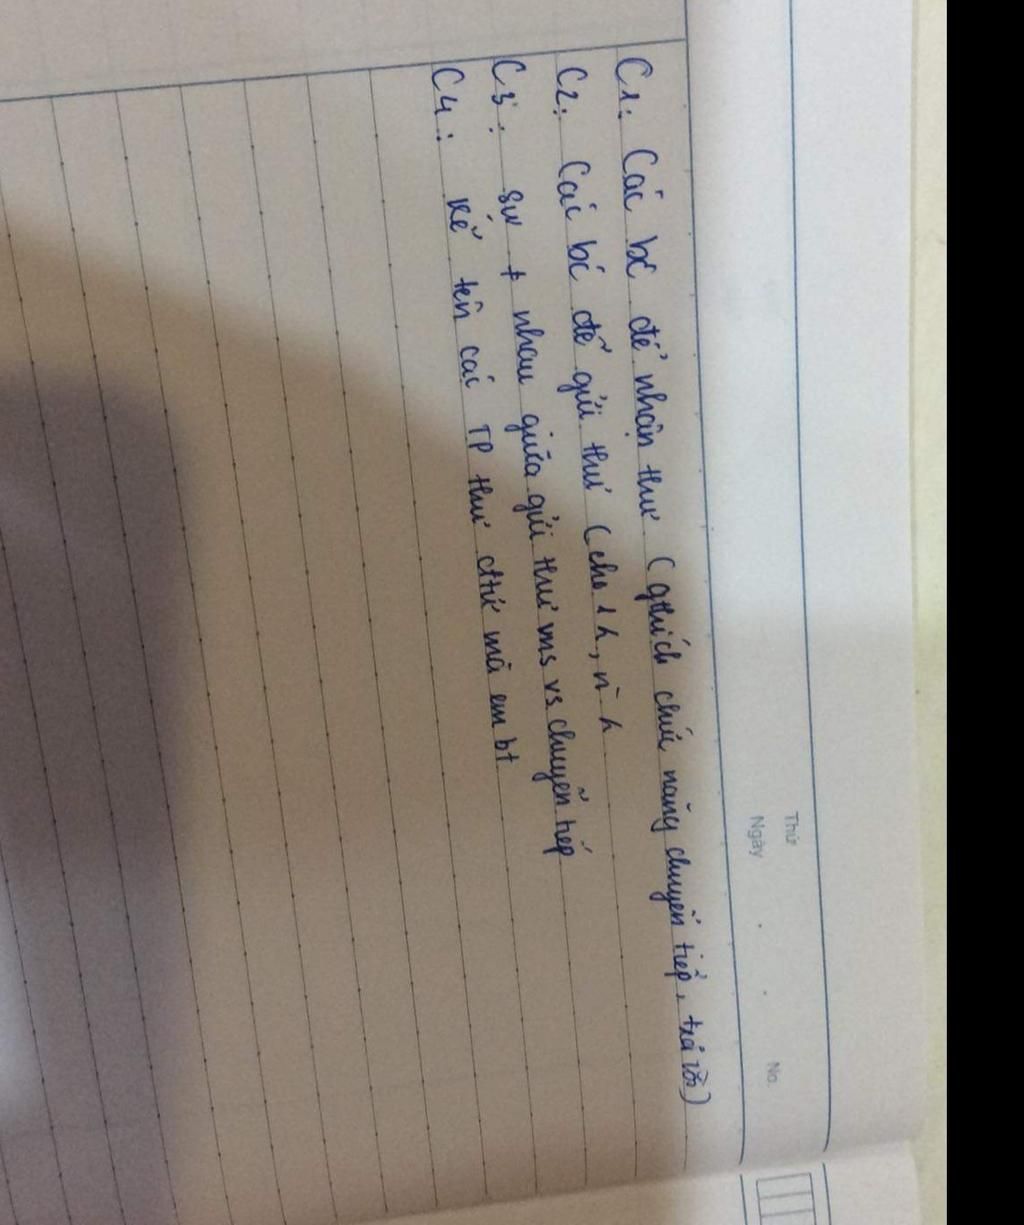 Thứ
Ngày . . No.
C1: Các bć để nhận thư (gthích chức năng chuyển tiếp, trả lời)
C2: Các bć để gửi thư (cho 1 h, n̄ h
C3: sự ≠ nhau giữa gửi thư ms vs chuyển tiếp
C4: kể tên các TP thư đtử mà em bt